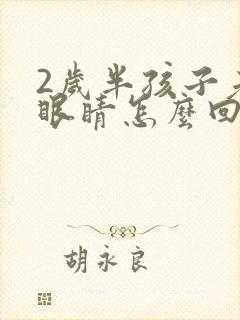 2歲半孩子
眼睛怎麼回
胡永良